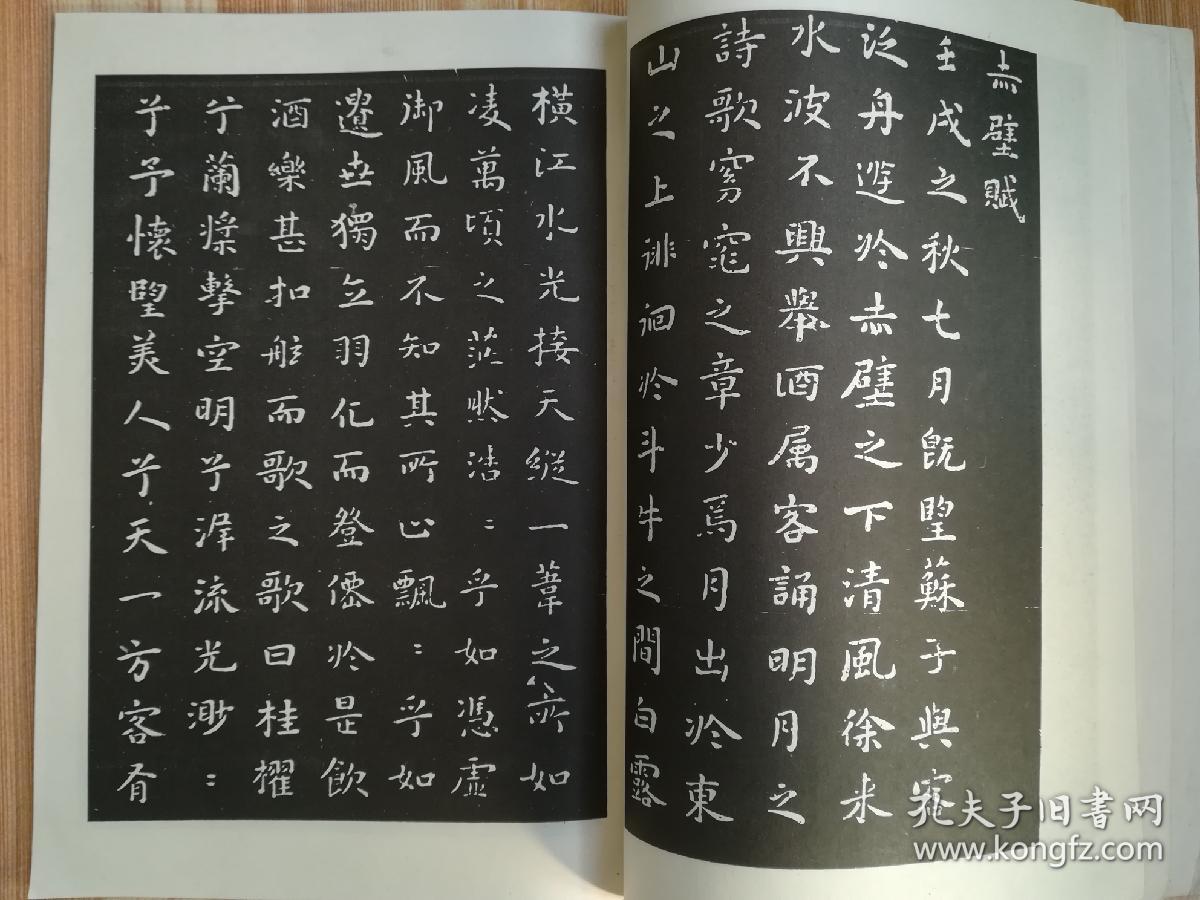 赤壁賦
壬戌之秋七月既望蘇子與客
泛舟遊於赤壁之下清風徐来
水波不興舉酒属客誦明月之
詩歌窈窕之章少焉月出於東
山之上徘徊於斗牛之間白露
橫江水光接天縱一葦之所如
凌萬頃之茫然浩〻乎如馮虛
御風而不知其所止飄〻乎如
遺世獨立羽化而登僊於是飲
酒樂甚扣舷而歌之歌曰桂櫂
兮蘭槳擊空明兮泝流光渺〻
兮予懷望美人兮天一方客有
孔夫子旧书网
www.kongfz.com